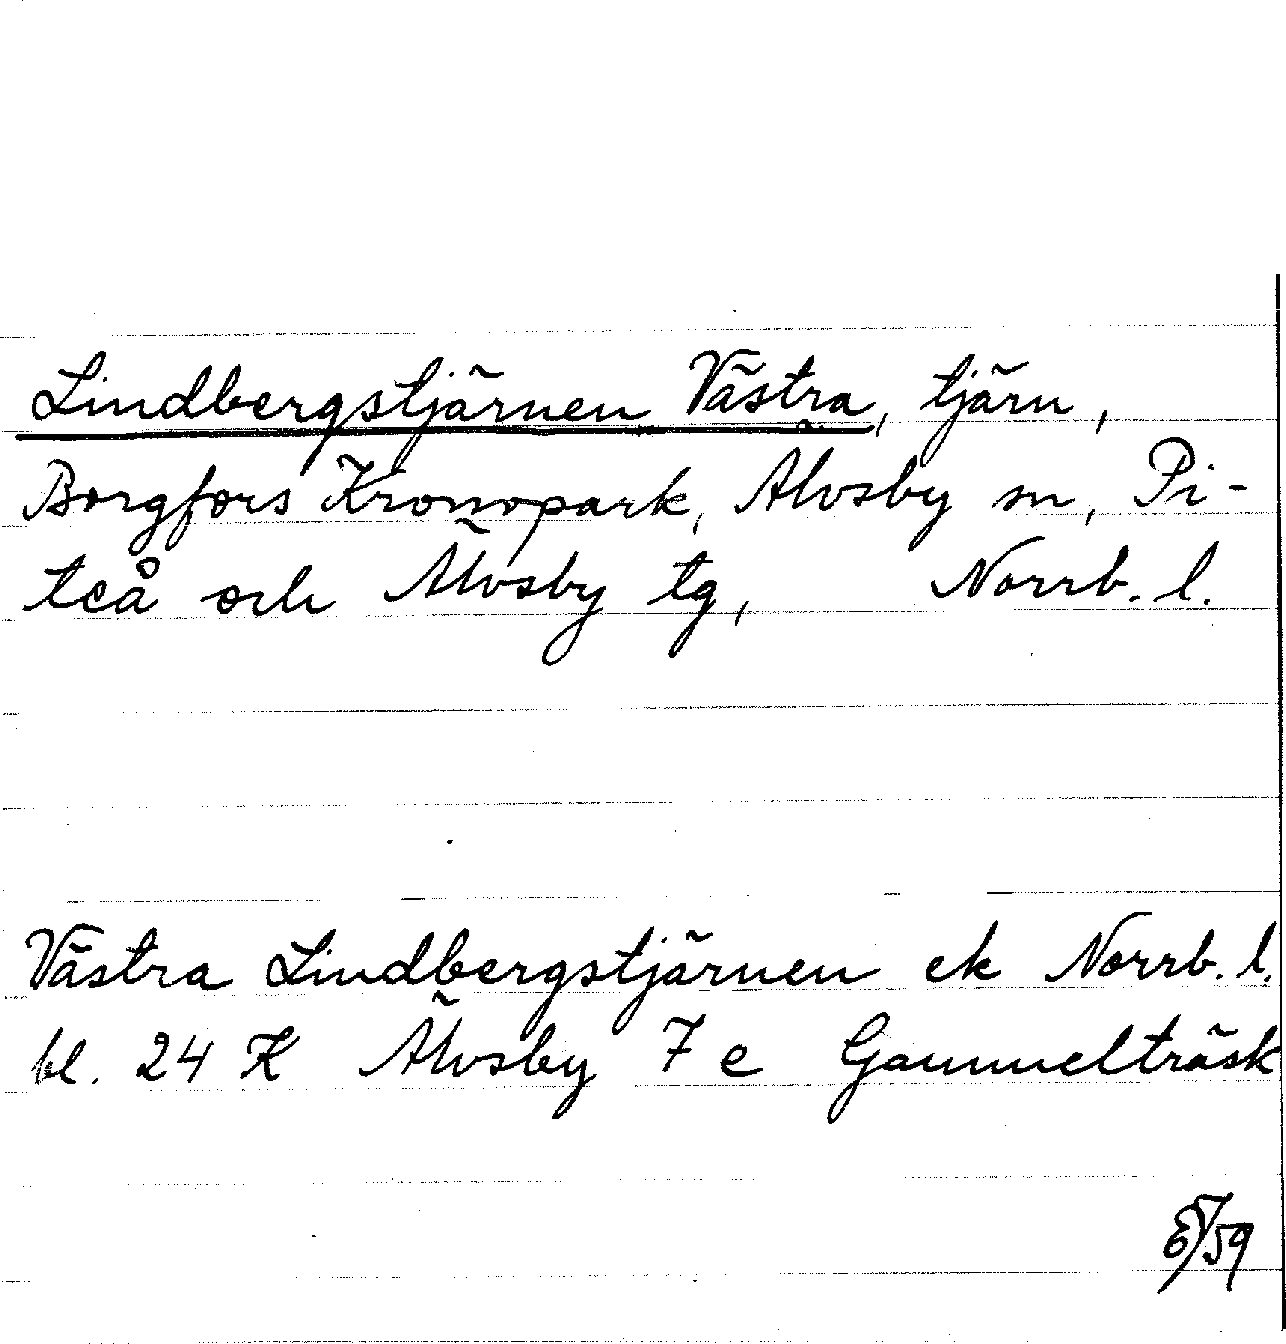 Lindbergstjärnen Västra, tjärn,
Borgfors Kronopark, Älvsby sn, Pi-
teå och Älvsby tg, Norrb. l.
Västra Lindbergstjärnen ek Norrb. l.
bl. 24 K Älvsby 7 e Gammelträsk